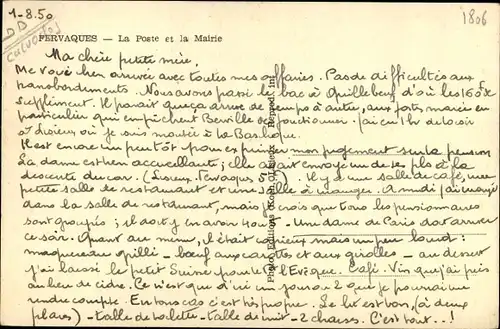 1-8.50
DD
Calvados
1806
FERVAQUES — La Poste et la Mairie
Ma chère petite mère,
Me voici bien arrivée avec toutes mes affaires. Pas de difficultés aux
transbordements. Nous avons passé le bac à Quilleboeuf d'où les 160f de
supplément. Il paraît que ça arrive de temps à autre, aux forts marées en
particulier qui empêchent Berville de fonctionner. J'ai eu 1hr de loisir
à Lisieux où je suis montée à la Basilique.
Il est encore un peu tôt pour exprimer mon jugement sur la pension
La dame est bien accueillante ; elle avait envoyé un de ses à la
descente du car. (Lisieux. Fervaques ). Il y a une salle de café, une
petite salle de restaurant et une salle à manger. A midi j'ai mangé
dans la salle de restaurant, mais je crois que tous les pensionnaires
sont groupés ; il doit y en avoir . Une dame de Paris doit arriver
ce soir. Quant au menu, il était copieux mais un peu lourd :
maquereau grillé - boeuf aux carottes et aux girolles - au dessert
j'ai laissé le petit Suisse pour le Pt l'Evêque. Café. Vin que j'ai pris
au lieu de cidre. Ce n'est que d'ici un jour ou 2 que je pourrai me
rendre compte. En tous cas c'est propre. Le lit est bon, (à deux
places) - table de toilette - table de nuit - 2 chaises. C'est tout..!
Photo Editions Lisieux Reprod. Int.